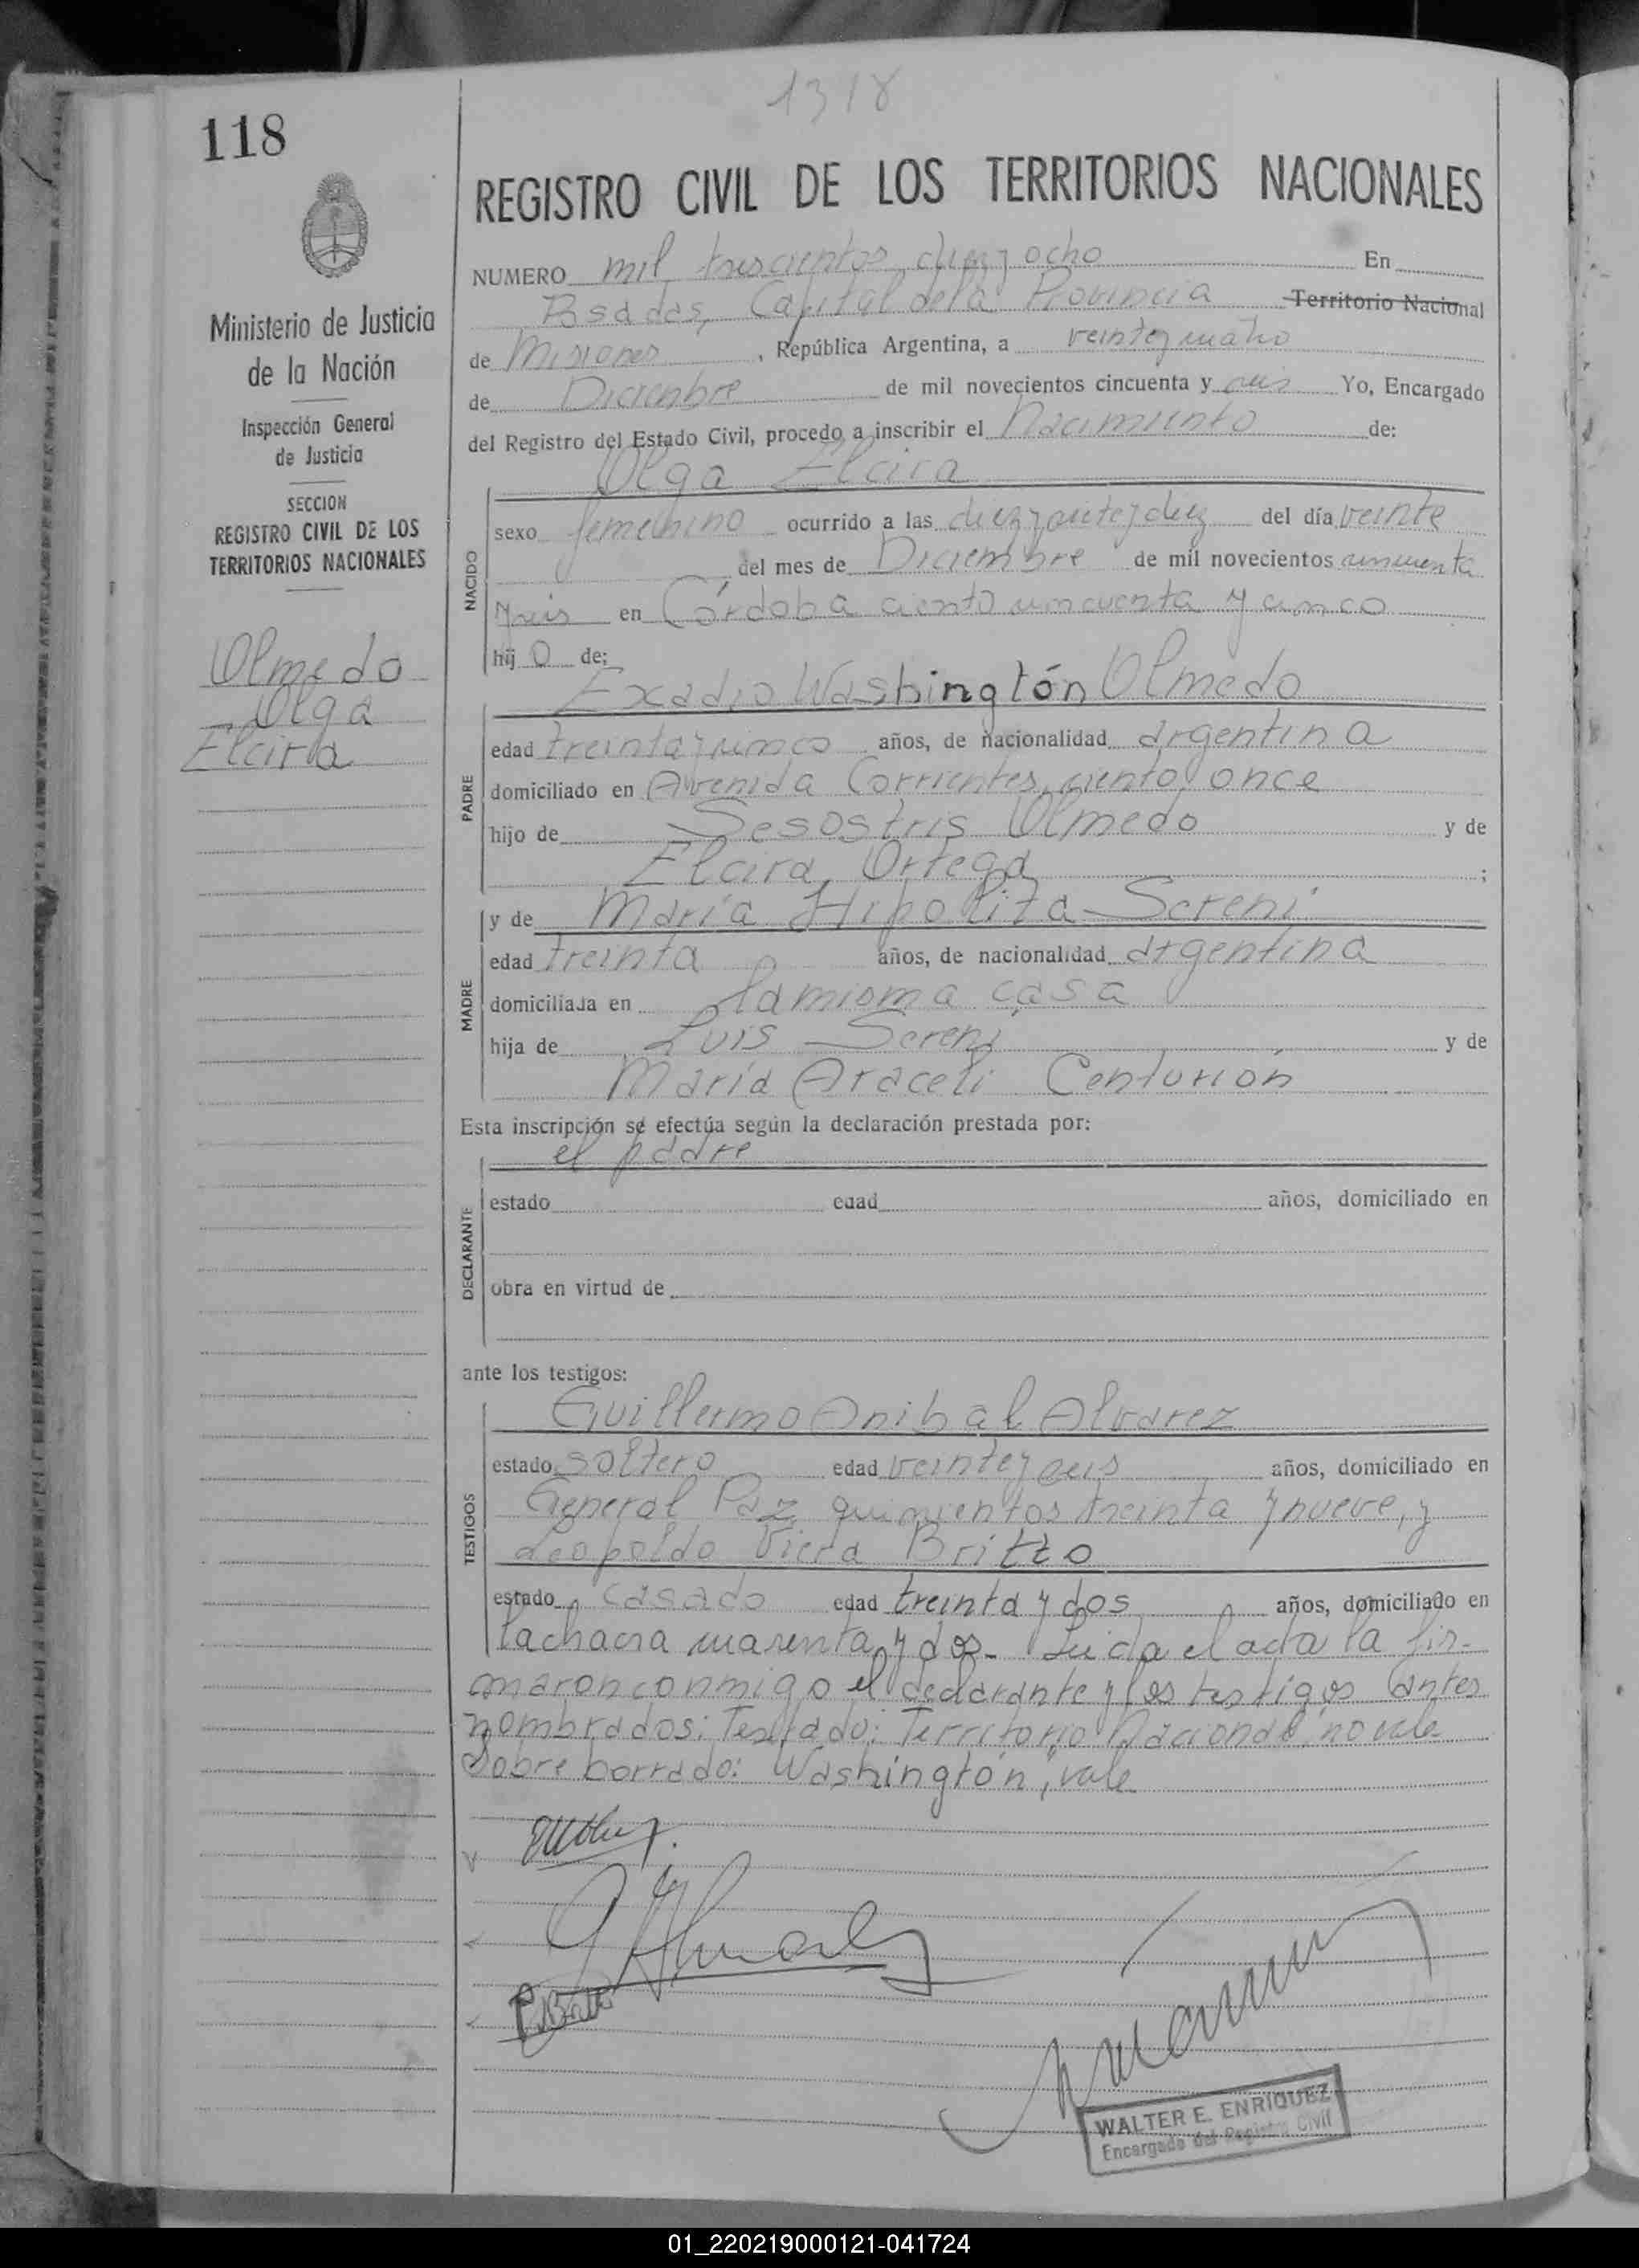 1318
118
REGISTRO CIVIL DE LOS TERRITORIOS NACIONALES
Ministerio de Justicia
de la Nación
Inspección General
de Justicia
SECCION
REGISTRO CIVIL DE LOS
TERRITORIOS NACIONALES
Olmedo
Olga
Elcira
NUMERO mil trescientos diez y ocho En
Posadas, Capital de la Provincia Territorio Nacional
de Misiones, República Argentina, a veinte y cuatro
de Diciembre de mil novecientos cincuenta y seis Yo, Encargado
del Registro del Estado Civil, procedo a inscribir el Nacimiento de:
Olga Elcira
NACIDO
sexo femenino ocurrido a las diez y siete y diez del día veinte
del mes de Diciembre de mil novecientos cincuenta
y seis en Córdoba ciento cincuenta y cinco
hij o de:
Exadio Washingtón Olmedo
PADRE
edad treinta y cinco años, de nacionalidad argentina
domiciliado en Avenida Corrientes, ciento once
hijo de Sesostris Olmedo y de
Elcira Ortega ;
y de María Hipolita Sereni
MADRE
edad treinta años, de nacionalidad argentina
domiciliada en la misma casa
hija de Luis Sereni y de
María Araceli Centurión
Esta inscripción se efectúa según la declaración prestada por:
el padre
DECLARANTE
estado edad años, domiciliado en
obra en virtud de
ante los testigos:
Guillermo Anibal Alvarez
TESTIGOS
estado soltero edad veinte y seis años, domiciliado en
General Paz quinientos treinta y nueve, y
Leopoldo Viera Britto
estado casado edad treinta y dos años, domiciliado en
la chacra cuarenta y dos.- Leida el acta la fir-
maron conmigo el declarante y los testigos antes
nombrados: Testado: Territorio Nacional, no vale
Sobre borrado: Washington, vale
WALTER E. ENRIQUEZ
Encargado del Registro Civil
01_220219000121-041724